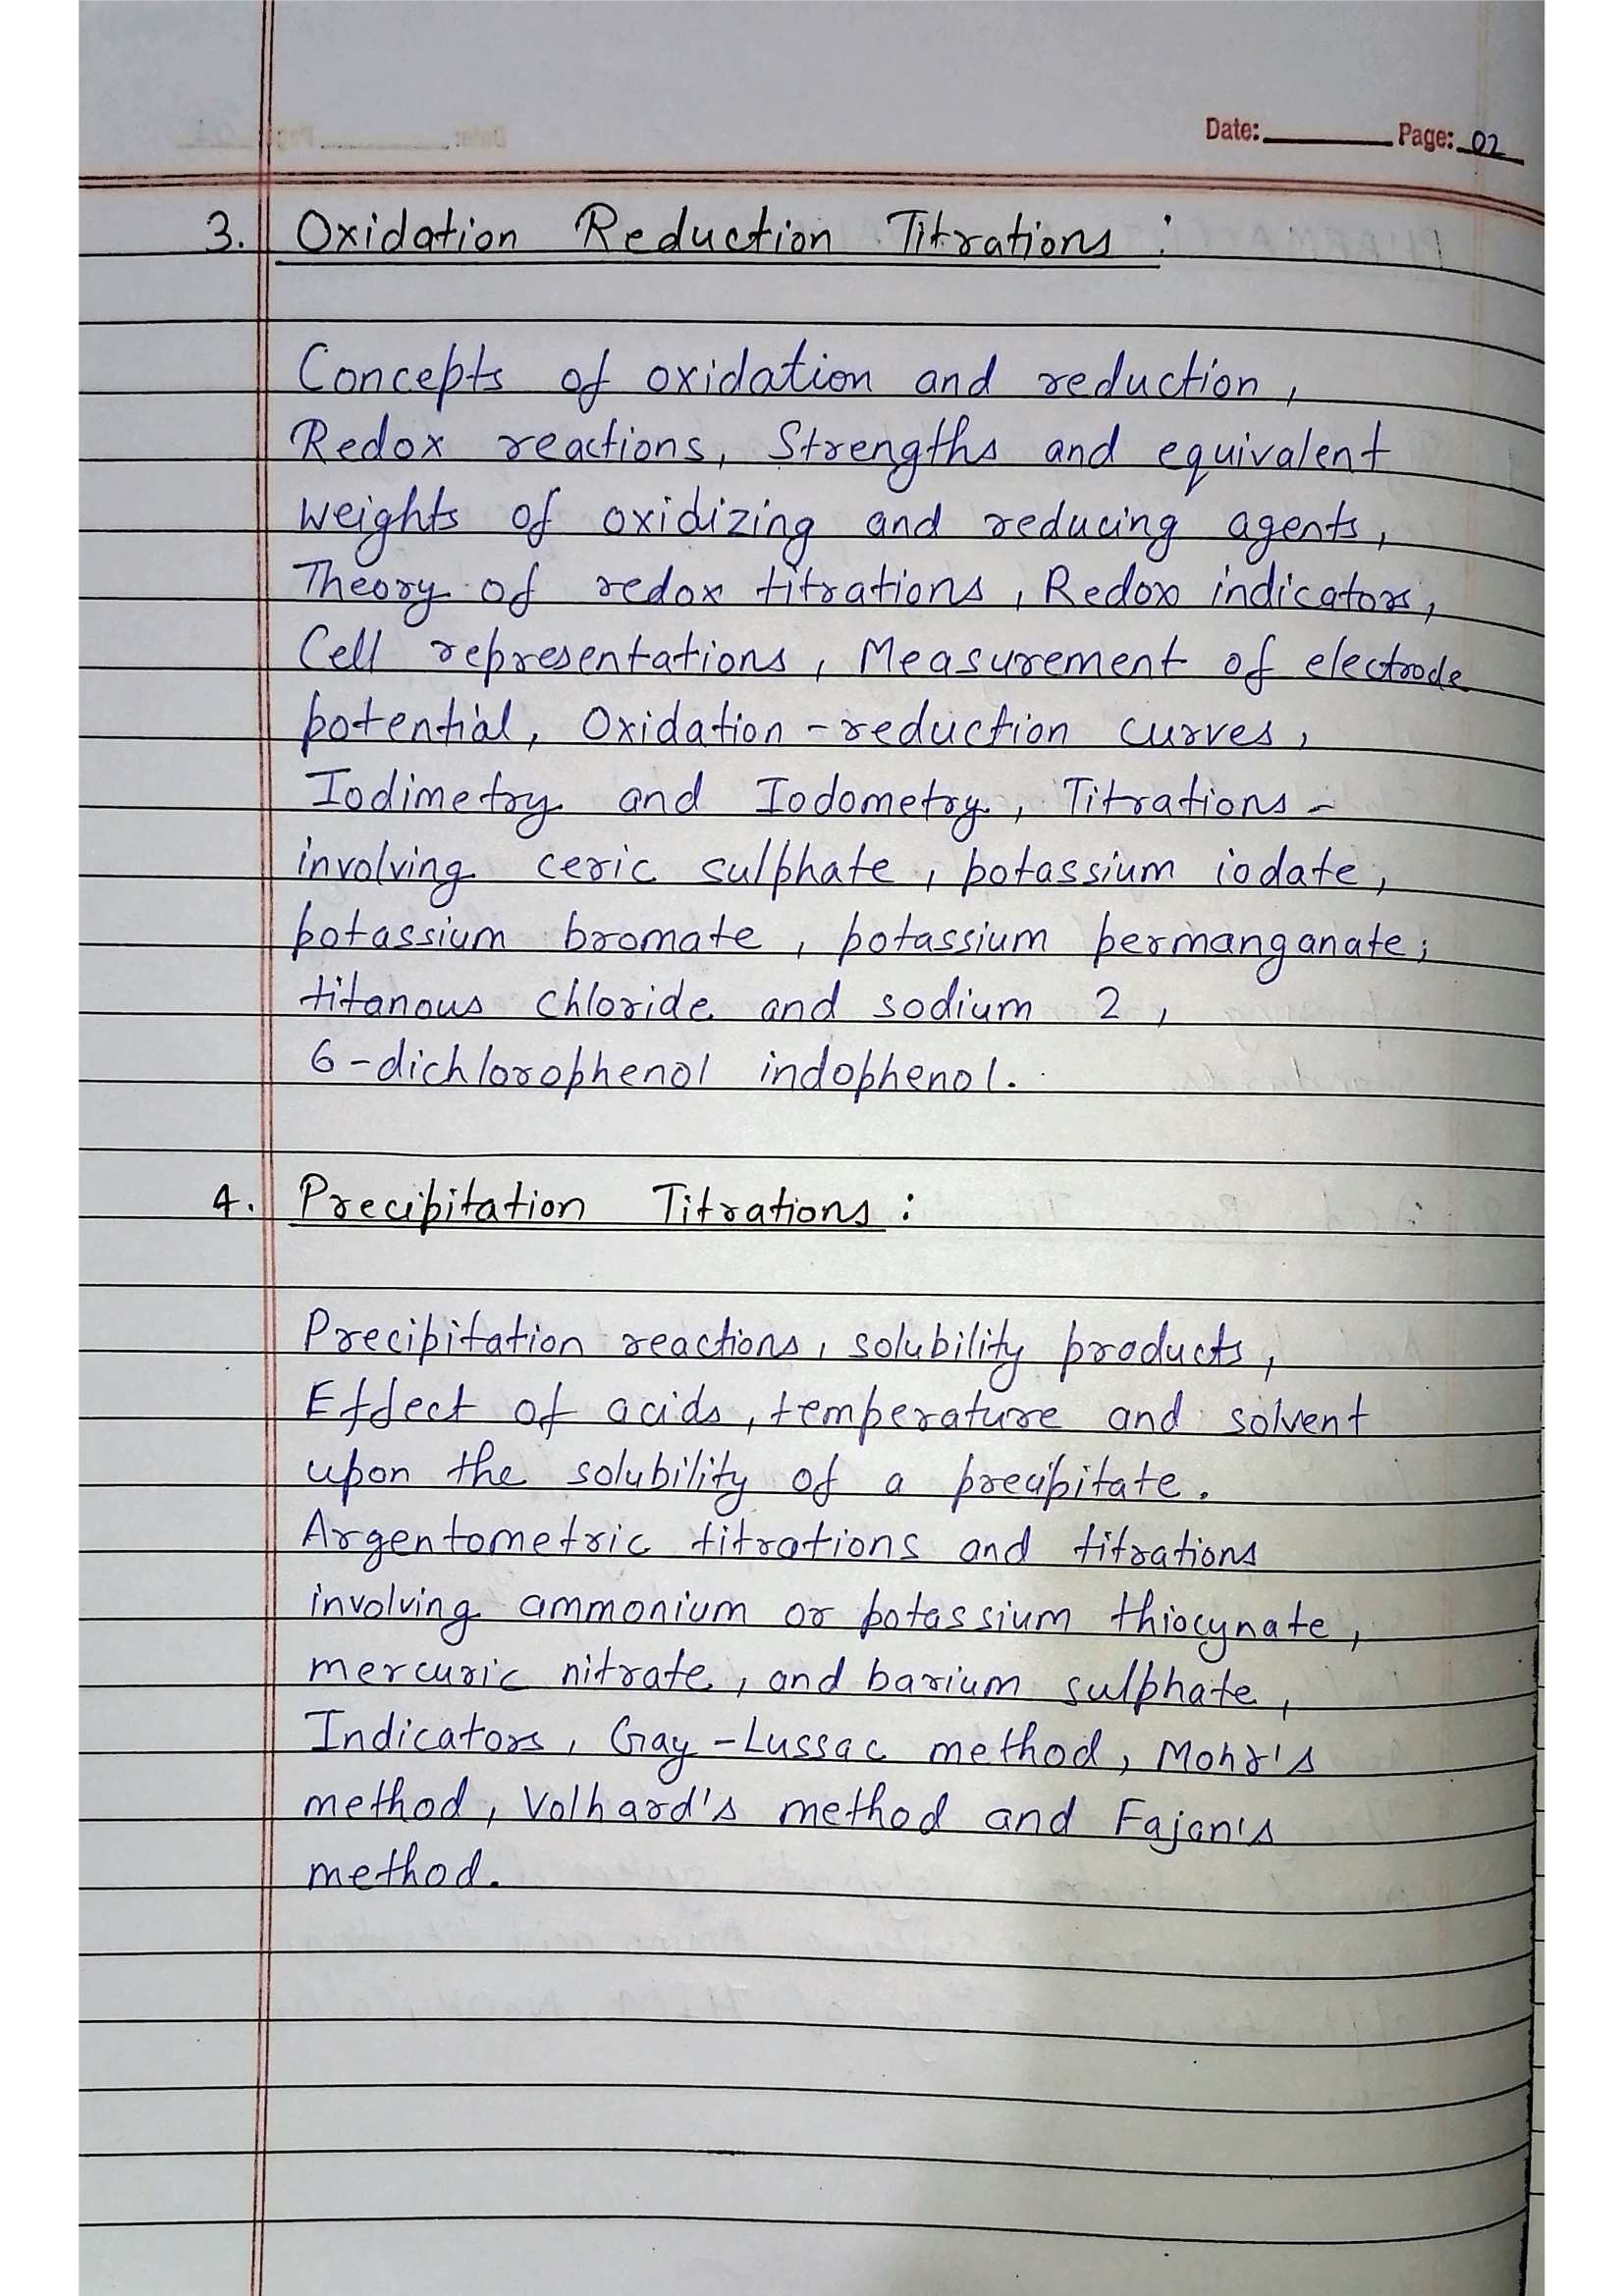 Date: Page: 02
3. Oxidation Reduction Titrations :
Concepts of oxidation and reduction,
Redox reactions, Strengths and equivalent
weights of oxidizing and reducing agents,
Theory of redox titrations, Redox indicators,
Cell representations, Measurement of electrode
potential, Oxidation-reduction curves,
Iodimetry and Iodometry, Titrations-
involving ceric sulphate, potassium iodate,
potassium bromate, potassium permanganate;
titanous chloride and sodium 2,
6-dichlorophenol indophenol.
4. Precipitation Titrations :
Precipitation reactions, solubility products,
Effect of acids, temperature and solvent
upon the solubility of a precipitate.
Argentometric titrations and titrations
involving ammonium or potassium thiocynate,
mercuric nitrate, and barium sulphate,
Indicators, Gay-Lussac method, Mohr's
method, Volhard's method and Fajan's
method.